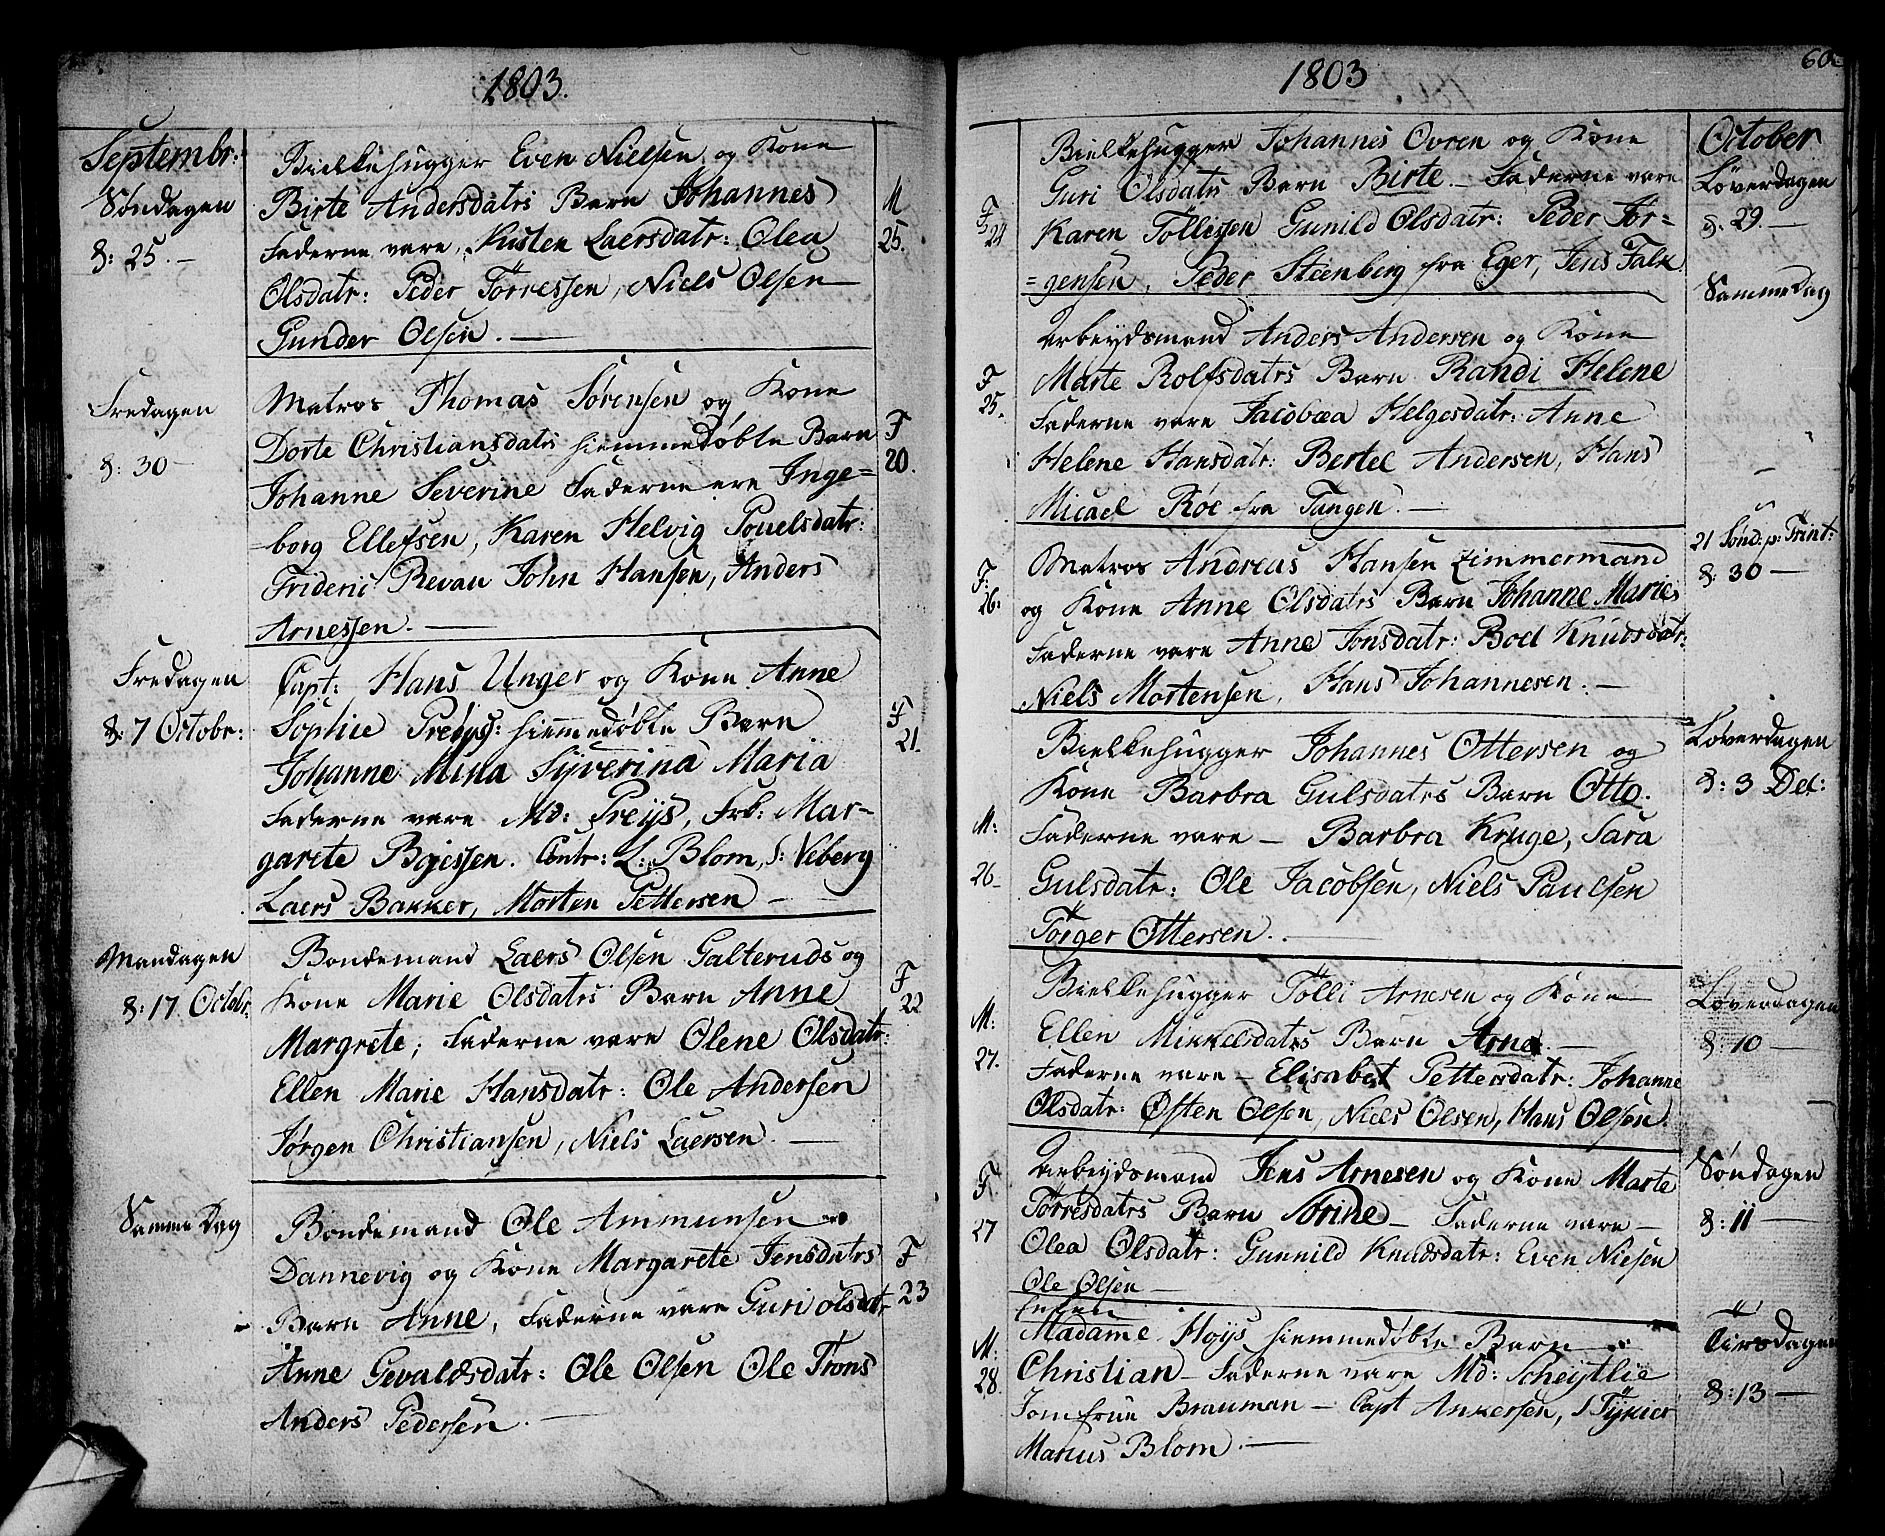 1803.
Septembr:
Søndagen
d: 25. —
Bielkehugger Even Nielsen og Kone
Birte Andersdatrs Barn Johannes
Faderne vare, Kirsten Laersdatr: Olea
Olsdatr: Peder Torressen, Niels Olsen
Gunder Olsen. —
M
25.
Fredagen
d: 30 —
Matros Thomas Sørensen og Kone
Dorte Christiansdatrs hiemmedøbte Barn
Johanne Severine Faderne ere Inge=
=borg Ellefsen, Karen Helvig Pouelsdatr:
Frideric Revau John Hansen, Anders
Arnessen. —
F
20.
Fredagen
d: 7 Octobr:
Capt: Hans Unger og Kone Anne
Sophie Preÿs: hiemmedøbte Barn
Johanne Mina Syverina Maria
Faderne vare Md: Preÿs, Frk: Mar-
garete Bojessen. Contr: L: Blom, S: Veberg
Laers Bakker, Morten Pettersen —
F
21.
Mandagen
d: 17 Octobr:
Bondemand Laers Olsen Galteruds og
Kone Marie Olsdatrs Barn Anne
Margrete; Faderne vare Olene Olsdatr:
Ellen Marie Hansdatr: Ole Andersen
Jørgen Christiansen, Niels Laersen. —
F
22
Samme Dag
Bondemand Ole Ammunsen
Dannevig og Kone Margarete Jensdatrs
Barn Anne, Faderne vare Guri Olsdatr
Anne Gevaldsdatr: Ole Olsen Ole Trons
Anders Pedersen. —
F
23
1803
60
October
Løverdagen
d: 29. —
F
24
Bielkehugger Johannes Ovren og Kone
Guri Olsdatrs Barn Birte. — Faderne vare
Karen Tollessen Gunild Olsdatr: Peder Jør=
=gensen, Peder Steenberg fra Eger, Jens Falk
Samme Dag
F
25.
Arbeydsmand Anders Andersen og Kone
Marte Rolfsdatrs Barn Randi Helene
Faderne vare Jacobæa Helgesdatr: Anne
Helene Hansdatr: Bertel Andersen, Hans
Micael Røe fra Tangen. —
21 Sønd: p: Trint:
d: 30 —
F:
26.
Matros Andreas Hansen Zimmermand
og Kone Anne Olsdatrs Barn Johanne Marie
Faderne vare Anne Jonsdatr: Boel Knudsdatr.
Niels Mortensen, Hans Johannesen. —
Løverdagen
d: 3 Dec:
M:
26
Bielkehugger Johannes Ottersen og
Kone Barbra Gulsdatrs Barn Otto.
Faderne vare — Barbra Kruge, Sara
Gulsdatr: Ole Jacobsen, Niels Paulsen
Törger Ottersen. —
Løverdagen
d: 10 —
M:
27.
Bielkehugger Tolli Arnesen og Kone
Ellen Mikkelsdatrs Barn Arne. —
Faderne vare — Elisabet Pettersdatr: Johanne
Olsdatr: Østen Olsen, Niels Olsen, Hans Olsen.
Søndagen
d: 11 —
F
27
Arbeydsmand Jens Arnesen og Kone Marte
Torresdatrs Barn Sorine — Faderne vare —
Olea Olsdatr: Gunnild Knudsdatr: Even Nielsen
Ole Olsen —
Tirsdagen
d: 13 —
M:
28.
Madame Høÿs hiemmedøbte Barn
Christian — Faderne vare Md: Scheÿtlie
Jomfrue Brauman — Capt Ankersen, S Tÿkier
Marius Blom. —